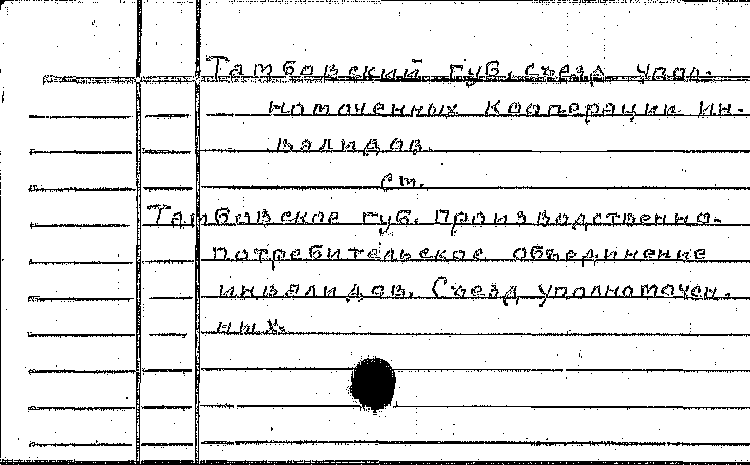 Тамбовский губ. съезд упол-
номоченных кооперации ин-
валидов.
см.
Тамбовское губ. производственно-
потребительское объединение
инвалидов. Съезд уполномочен-
ных.